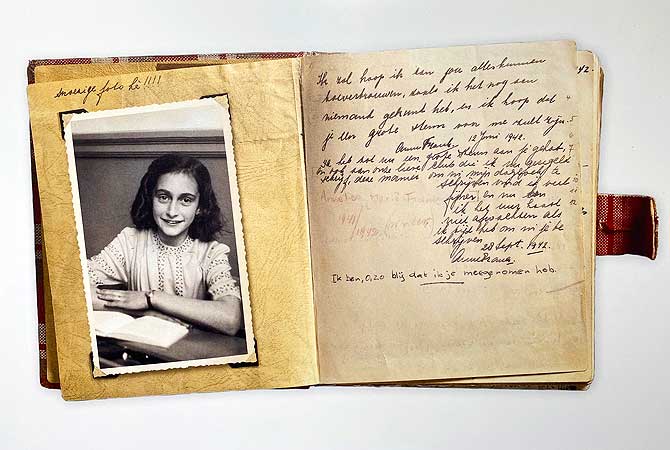 Snoezige foto hè !!!!
Ik zal hoop ik aan jou alles kunnen
toevertrouwen, zoals ik het nog aan
niemand gekund heb, en ik hoop dat
je een grote steun voor me zult zijn.
Anne Frank. 12 Juni 1942.
Ik heb tot nu een grote steun aan je gehad,
en ook aan onze lieve club die ik nu geregeld
schrijf, deze manier om in mijn dagboek te
schrijven vind ik veel
fijner en nu kan
ik het uur haast
niet afwachten als
ik tijd heb om in je te
schrijven.
28 Sept. 1942.
Anne Frank.
Ik ben, o, zo blij dat ik je meegenomen heb.
42.